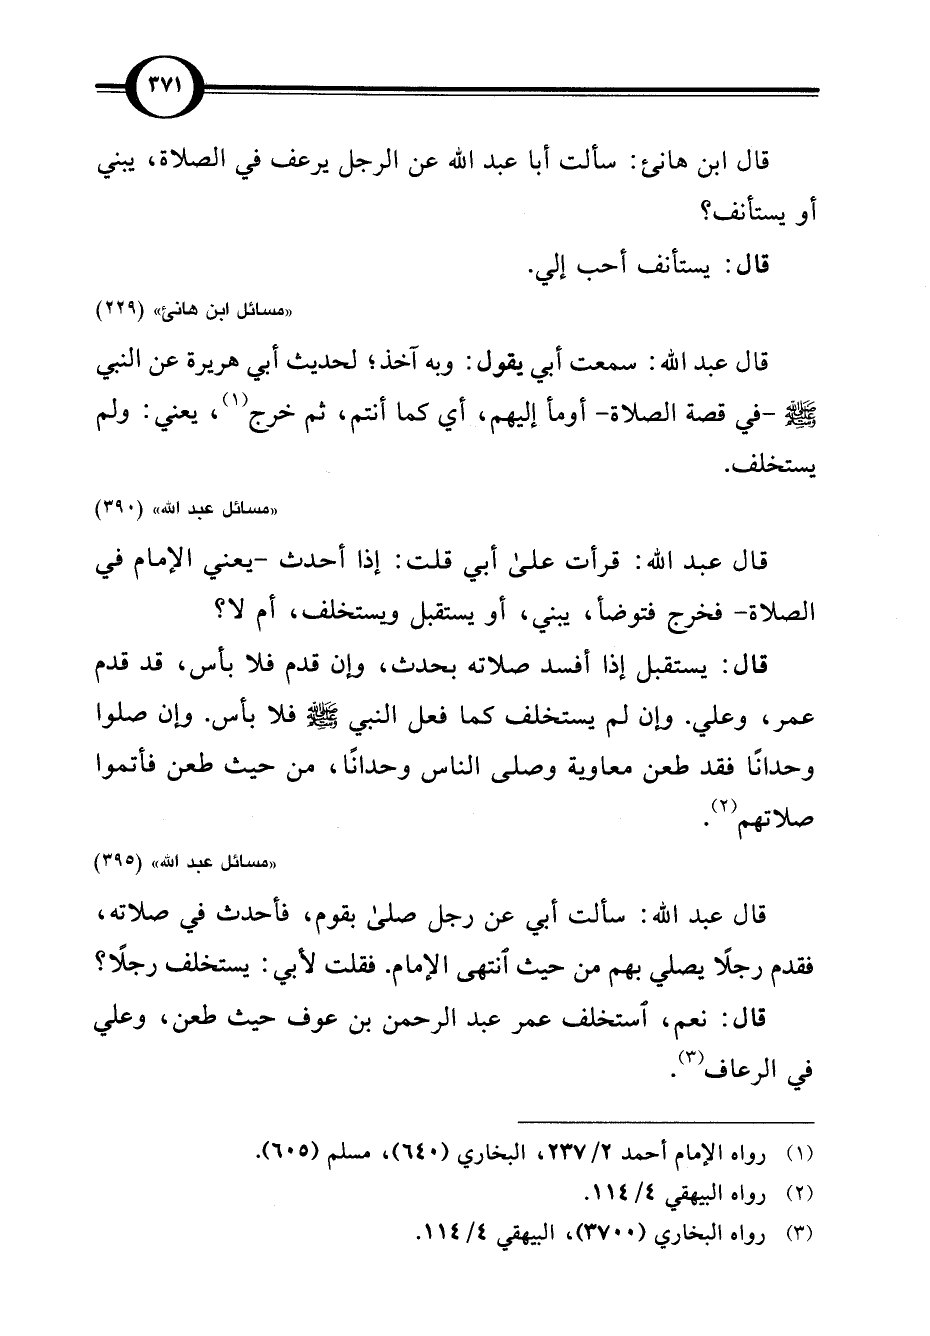 ٣٧١
قال ابن هانئ: سألت أبا عبد الله عن الرجل يرعف في الصلاة، يبني
أو يستأنف؟
قال: يستأنف أحب إلي.
«مسائل ابن هانئ» (٢٢٩)
قال عبد الله: سمعت أبي يقول: وبه آخذ؛ لحديث أبي هريرة عن النبي
ﷺ -في قصة الصلاة- أومأ إليهم، أي كما أنتم، ثم خرج(١)، يعني: ولم
يستخلف.
«مسائل عبد الله» (٣٩٠)
قال عبد الله: قرأت علىٰ أبي قلت: إذا أحدث -يعني الإمام في
الصلاة- فخرج فتوضأ، يبني، أو يستقبل ويستخلف، أم لا؟
قال: يستقبل إذا أفسد صلاته بحدث، وإن قدم فلا بأس، قد قدم
عمر، وعلي. وإن لم يستخلف كما فعل النبي ﷺ فلا بأس. وإن صلوا
وحدانًا فقد طعن معاوية وصلى الناس وحدانًا، من حيث طعن فأتموا
صلاتهم(٢).
«مسائل عبد الله» (٣٩٥)
قال عبد الله: سألت أبي عن رجل صلىٰ بقوم، فأحدث في صلاته،
فقدم رجلًا يصلي بهم من حيث ٱنتهى الإمام. فقلت لأبي: يستخلف رجلًا؟
قال: نعم، ٱستخلف عمر عبد الرحمن بن عوف حيث طعن، وعلي
في الرعاف(٣).
(١) رواه الإمام أحمد ٢/ ٢٣٧، البخاري (٦٤٠)، مسلم (٦٠٥).
(٢) رواه البيهقي ٤/ ١١٤.
(٣) رواه البخاري (٣٧٠٠)، البيهقي ٤/ ١١٤.